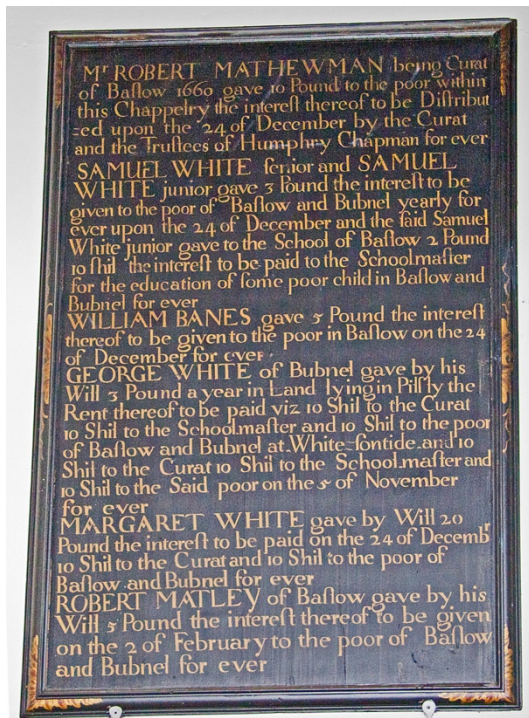 Mr ROBERT MATHEWMAN being Curat
of Baſlow 1669 gave 10 Pound to the poor within
this Chappelry the intereſt thereof to be Diſtribut
=ed upon the 24 of December by the Curat
and the Truſtees of Humphry Chapman for ever
SAMUEL WHITE ſenior and SAMUEL
WHITE junior gave 3 Pound the intereſt to be
given to the poor of Baſlow and Bubnel yearly for
ever upon the 24 of December and the ſaid Samuel
White junior gave to the School of Baſlow 2 Pound
10 ſhil the intereſt to be paid to the Schoolmaſter
for the education of ſome poor child in Baſlow and
Bubnel for ever
WILLIAM BANES gave 5 Pound the intereſt
thereof to be given to the poor in Baſlow on the 24
of December for ever
GEORGE WHITE of Bubnel gave by his
Will 3 Pound a year in Land lying in Pilſly the
Rent thereof to be paid viz 10 Shil to the Curat
10 Shil to the Schoolmaſter and 10 Shil to the poor
of Baſlow and Bubnel at White=ſontide and 10
Shil to the Curat 10 Shil to the School maſter and
10 Shil to the Said poor on the 5 of November
for ever
MARGARET WHITE gave by Will 20
Pound the intereſt to be paid on the 24 of Decembr
10 Shil to the Curat and 10 Shil to the poor of
Baſlow and Bubnel for ever
ROBERT MATLEY of Baſlow gave by his
Will 5 Pound the intereſt thereof to be given
on the 2 of February to the poor of Baſlow
and Bubnel for ever